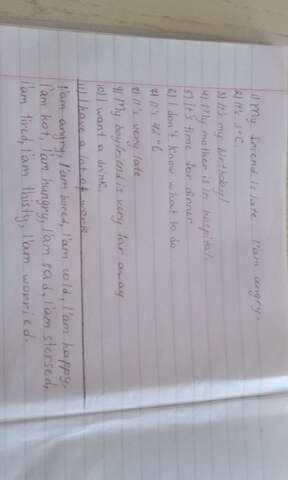 1) My friend is late I'am angry.
2) It's 3°C.
3) It's my birthday!
4) My mother is in hospital.
5) It's time for dinner
6) I don't know what to do
7) It's 42 °C
8) It's very late
9) My boyfriend is very far away
10) I want a drink.
11) I have a lot of work
I'am angry, I'am bored, I'am cold, I'am happy,
I'am hot, I'am hungry, I'am sad, I'am stersed,
I'am tired, I'am thisty, I'am worried.